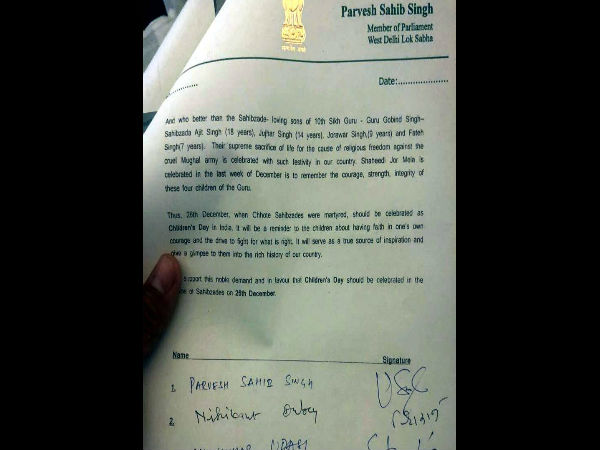 Parvesh Sahib Singh
Member of Parliament
West Delhi Lok Sabha
सत्यमेव जयते
Date:...................
And who better than the Sahibzade- loving sons of 10th Sikh Guru - Guru Gobind Singh–
Sahibzada Ajit Singh (18 years), Jujhar Singh (14 years), Jorawar Singh,(9 years) and Fateh
Singh(7 years). Their supreme sacrifice of life for the cause of religious freedom against the
cruel Mughal army is celebrated with such festivity in our country. Shaheed Jor Mela is
celebrated in the last week of December is to remember the courage, strength, integrity of
these four children of the Guru.
Thus, 26th December, when Chhote Sahibzades were martyred, should be celebrated as
Children's Day in India. It will be a reminder to the children about having faith in one's own
courage and the drive to fight for what is right. It will serve as a true source of inspiration and
give a glimpse to them into the rich history of our country.
support this noble demand and in favour that Children's Day should be celebrated in the
of Sahibzades on 26th December.
Name Signature
1. PARVESH SAHIB SINGH
2. Nishikant Dubey